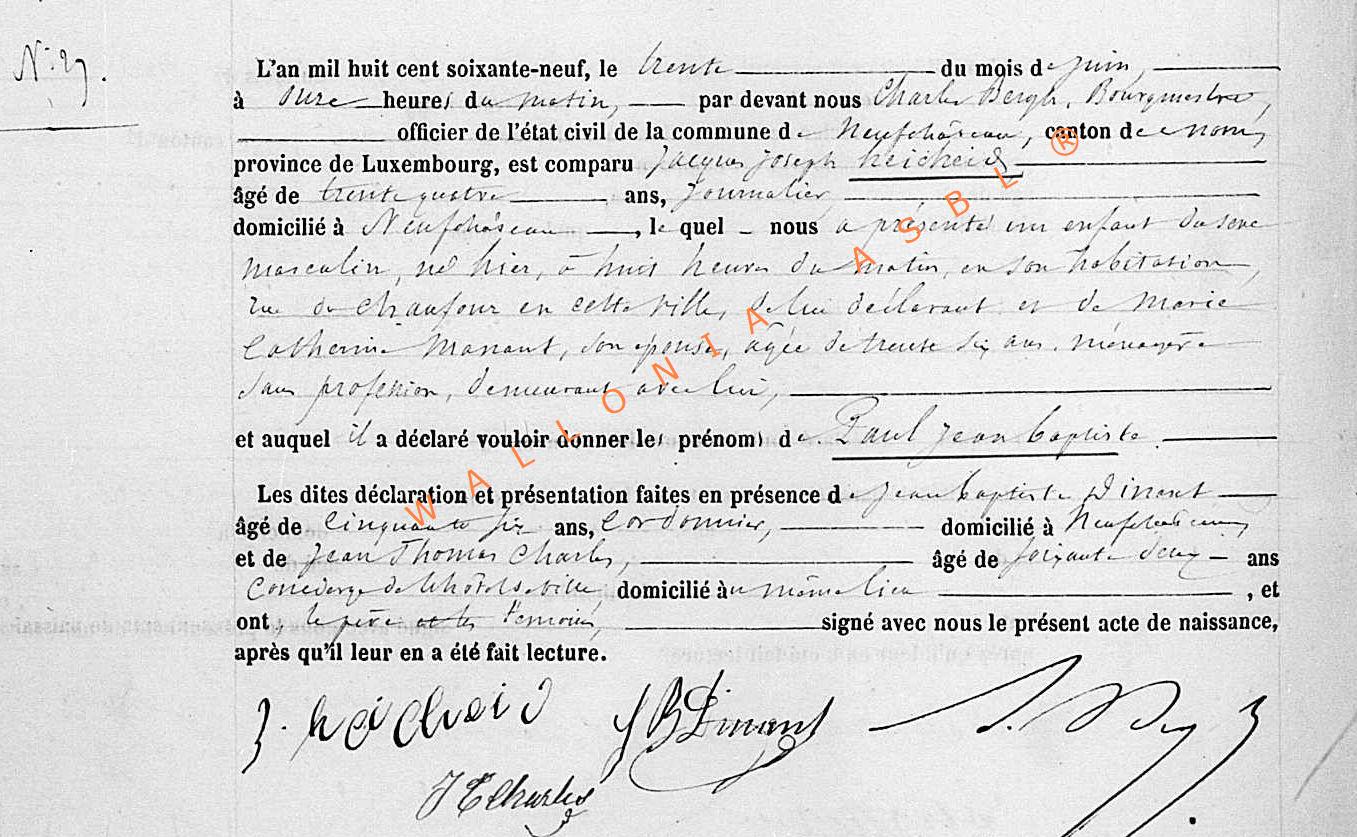 N° 29.
L'an mil huit cent soixante-neuf, le trente du mois de juin,
à onze heures du matin, par devant nous Charles Bergh, Bourgmestre,
officier de l'état civil de la commune de Neufchâteau, canton de nom,
province de Luxembourg, est comparu Jacques Joseph
âgé de trente quatre ans, journalier
domicilié à Neufchâteau, le quel nous a présenté un enfant du sexe
masculin, né hier, à huit heures du matin, en son habitation,
rue de Chaufour en cette ville, de lui déclarant et de Marie
Catherine Manant, son épouse, agée de trente six ans, ménagère
sans profession, demeurant avec lui,
et auquel il a déclaré vouloir donner les prénoms de Paul Jean baptiste
Les dites déclaration et présentation faites en présence de Jean baptiste Dinant
âgé de cinquante six ans, Cordonnier, domicilié à Neufchâteau,
et de Jean Thomas Charles, âgé de soixante deux ans
Concierge de l'hôtel de ville, domicilié au même lieu, et
ont le père et les témoins, signé avec nous le présent acte de naissance,
après qu'il leur en a été fait lecture.
JB Dinant
JT Charles
WALLONIA ASBL ®